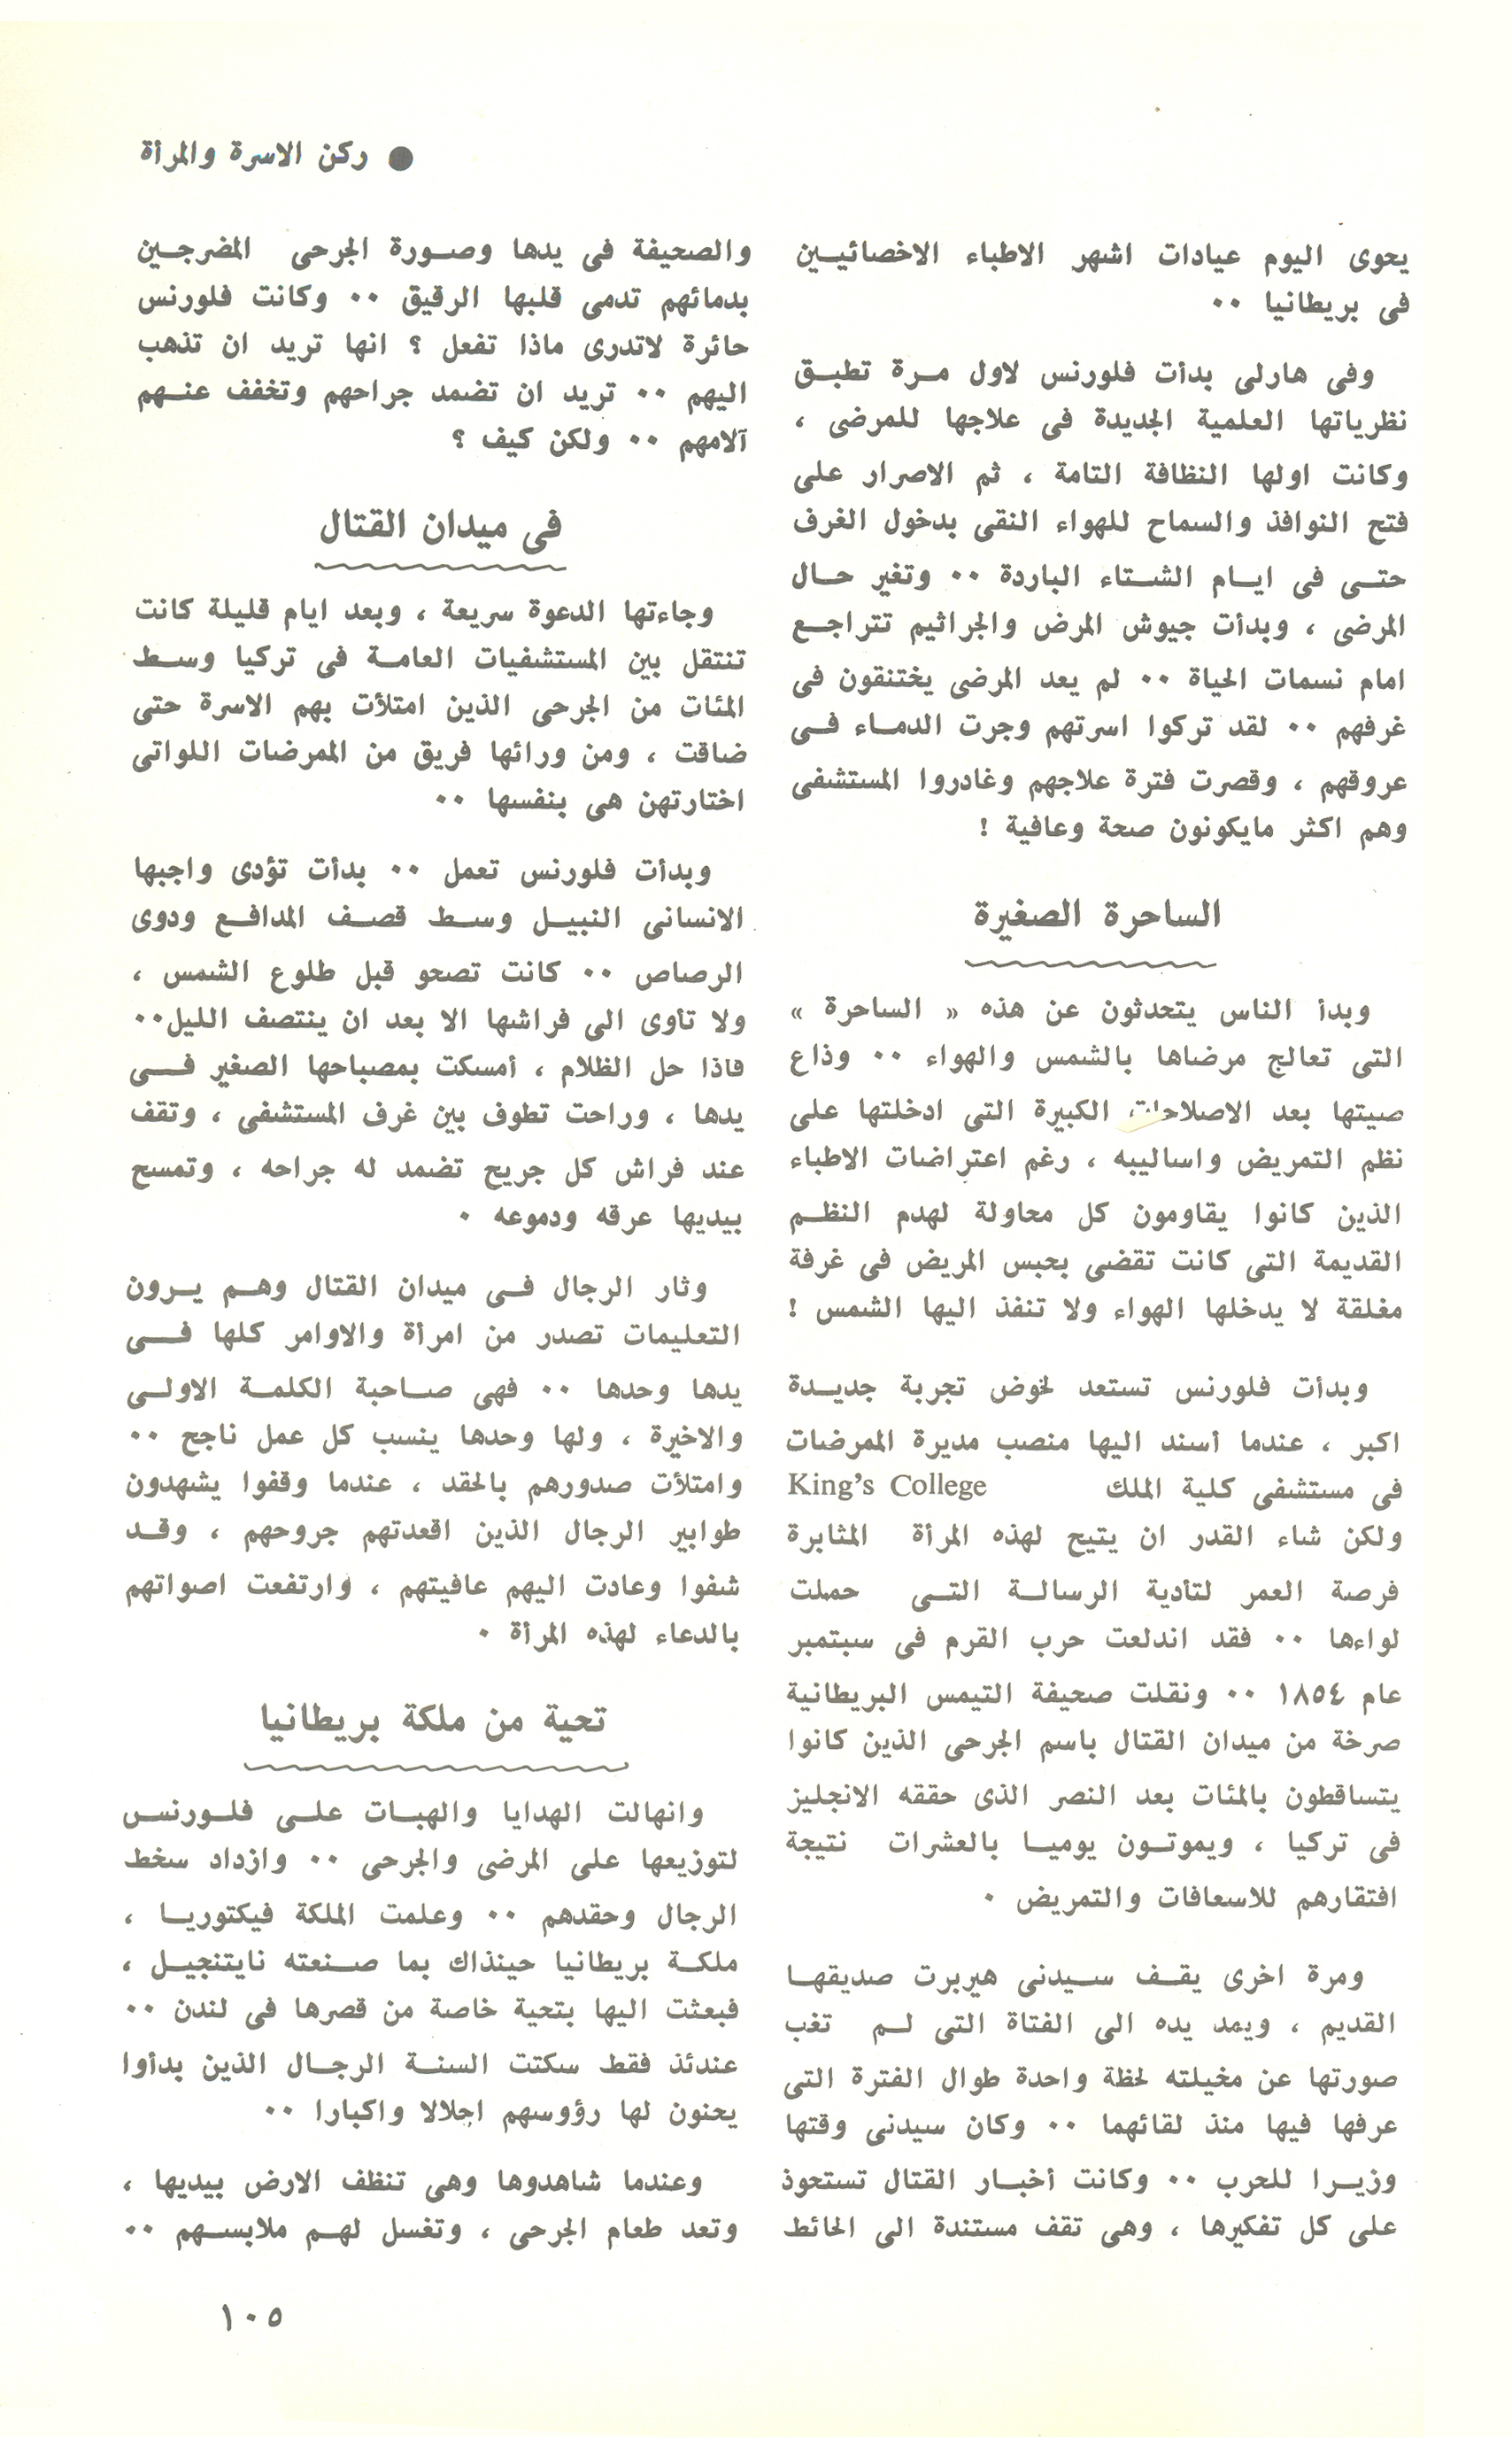 ● ركن الاسرة والمرأة
يحوى اليوم عيادات اشهر الاطباء الاخصائيـين
فى بريطانيا ٠٠
وفى هارلى بدأت فلورنس لاول مـرة تطبـق
نظرياتها العلمية الجديدة فى علاجها للمرضى ،
وكانت اولها النظافة التامة ، ثم الاصرار على
فتح النوافذ والسماح للهواء النقى بدخول الغرف
حتـى فى ايـام الشـتاء الباردة ٠٠ وتغير حـال
المرضى ، وبدأت جيوش المرض والجراثيم تتراجـع
امام نسمات الحياة ٠٠ لم يعد المرضى يختنقون فى
غرفهم ٠٠ لقد تركوا اسرتهم وجرت الدمـاء فـى
عروقهم ، وقصرت فترة علاجهم وغادروا المستشفى
وهم اكثر مايكونون صحة وعافية !
الساحرة الصغيرة
وبدأ الناس يتحدثون عن هذه « الساحرة »
التى تعالج مرضاها بالشمس والهواء ٠٠ وذاع
صيتها بعد الاصلاحات الكبيرة التى ادخلتها على
نظم التمريض واساليبه ، رغم اعتراضات الاطباء
الذين كانوا يقاومون كل محاولة لهدم النظـم
القديمة التى كانت تقضى بحبس المريض فى غرفة
مغلقة لا يدخلها الهواء ولا تنفذ اليها الشمس !
وبدأت فلورنس تستعد لخوض تجربة جديـدة
اكبر ، عندما أسند اليها منصب مديرة الممرضات
فى مستشفى كلية الملك King's College
ولكن شاء القدر ان يتيح لهذه المرأة المثابرة
فرصة العمر لتأدية الرسالـة التـى حملت
لواءها ٠٠ فقد اندلعت حرب القرم فى سبتمبر
عام ١٨٥٤ ٠٠ ونقلت صحيفة التيمس البريطانية
صرخة من ميدان القتال باسم الجرحى الذين كانوا
يتساقطون بالمئات بعد النصر الذى حققه الانجليز
فى تركيا ، ويموتـون يوميـا بالعشرات نتيجة
افتقارهم للاسعافات والتمريض ٠
ومرة اخرى يقـف سـيدنى هيربرت صديقهـا
القديم ، ويمد يده الى الفتاة التى لـم تغب
صورتها عن مخيلته لحظة واحدة طوال الفترة التى
عرفها فيها منذ لقائهما ٠٠ وكان سيدنى وقتها
وزيـرا للحرب ٠٠ وكانت أخبـار القتال تستحوذ
على كل تفكيرها ، وهى تقف مستندة الى الحائط
والصحيفة فى يدها وصـورة الجرحى المضرجـين
بدمائهم تدمى قلبها الرقيق ٠٠ وكانت فلورنس
حائرة لاتدرى ماذا تفعل ؟ انها تريد ان تذهب
اليهم ٠٠ تريد ان تضمد جراحهم وتخفف عنـهم
آلامهم ٠٠ ولكن كيف ؟
فى ميدان القتال
وجاءتها الدعوة سريعة ، وبعد ايام قليلة كانت
تنتقل بين المستشفيات العامـة فى تركيا وسـط
المئات من الجرحى الذين امتلأت بهم الاسرة حتى
ضاقت ، ومن ورائها فريق من الممرضات اللواتى
اختارتهن هى بنفسها ٠٠
وبدأت فلورنس تعمل ٠٠ بدأت تؤدى واجبها
الانسانى النبيـل وسـط قصـف المدافـع ودوى
الرصاص ٠٠ كانت تصحو قبل طلوع الشمس ،
ولا تأوى الى فراشها الا بعد ان ينتصف الليل٠٠
فاذا حل الظلام ، أمسكت بمصباحها الصغير فـى
يدها ، وراحت تطوف بين غرف المستشفى ، وتقف
عند فراش كل جريح تضمد له جراحه ، وتمسح
بيديها عرقه ودموعه ٠
وثار الرجال فـى ميدان القتال وهـم يـرون
التعليمات تصدر من امرأة والاوامر كلها فـى
يدها وحدها ٠٠ فهى صـاحبة الكلمـة الاولـى
والاخيرة ، ولها وحدها ينسب كل عمل ناجح ٠٠
وامتلأت صدورهم بالحقد ، عندما وقفوا يشهدون
طوابير الرجال الذين اقعدتهم جروحهم ، وقـد
شفوا وعادت اليهم عافيتهم ، وارتفعت اصواتهم
بالدعاء لهذه المرأة ٠
تحية من ملكة بريطانيا
وانهالت الهدايا والهبـات علـى فلـورنـس
لتوزيعها على المرضى والجرحى ٠٠ وازداد سخط
الرجال وحقدهم ٠٠ وعلمت الملكة فيكتوريـا ،
ملكـة بريطانيا حينذاك بما صـنعته نايتنجيـل ،
فبعثت اليها بتحية خاصة من قصرها فى لندن ٠٠
عندئذ فقط سكتت السنـة الرجـال الذين بدأوا
يحنون لها رؤوسهم اجلالا واكبارا ٠٠
وعندما شاهدوها وهى تنظف الارض بيديها ،
وتعد طعام الجرحى ، وتغسل لهـم ملابسـهم ٠٠
١٠٥